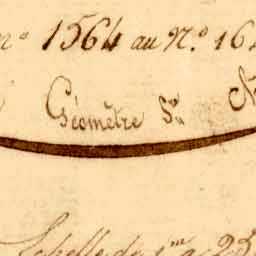 n.º 1564 au N.º 164
Géomètre S.on N
Echelle de 1.me a 25